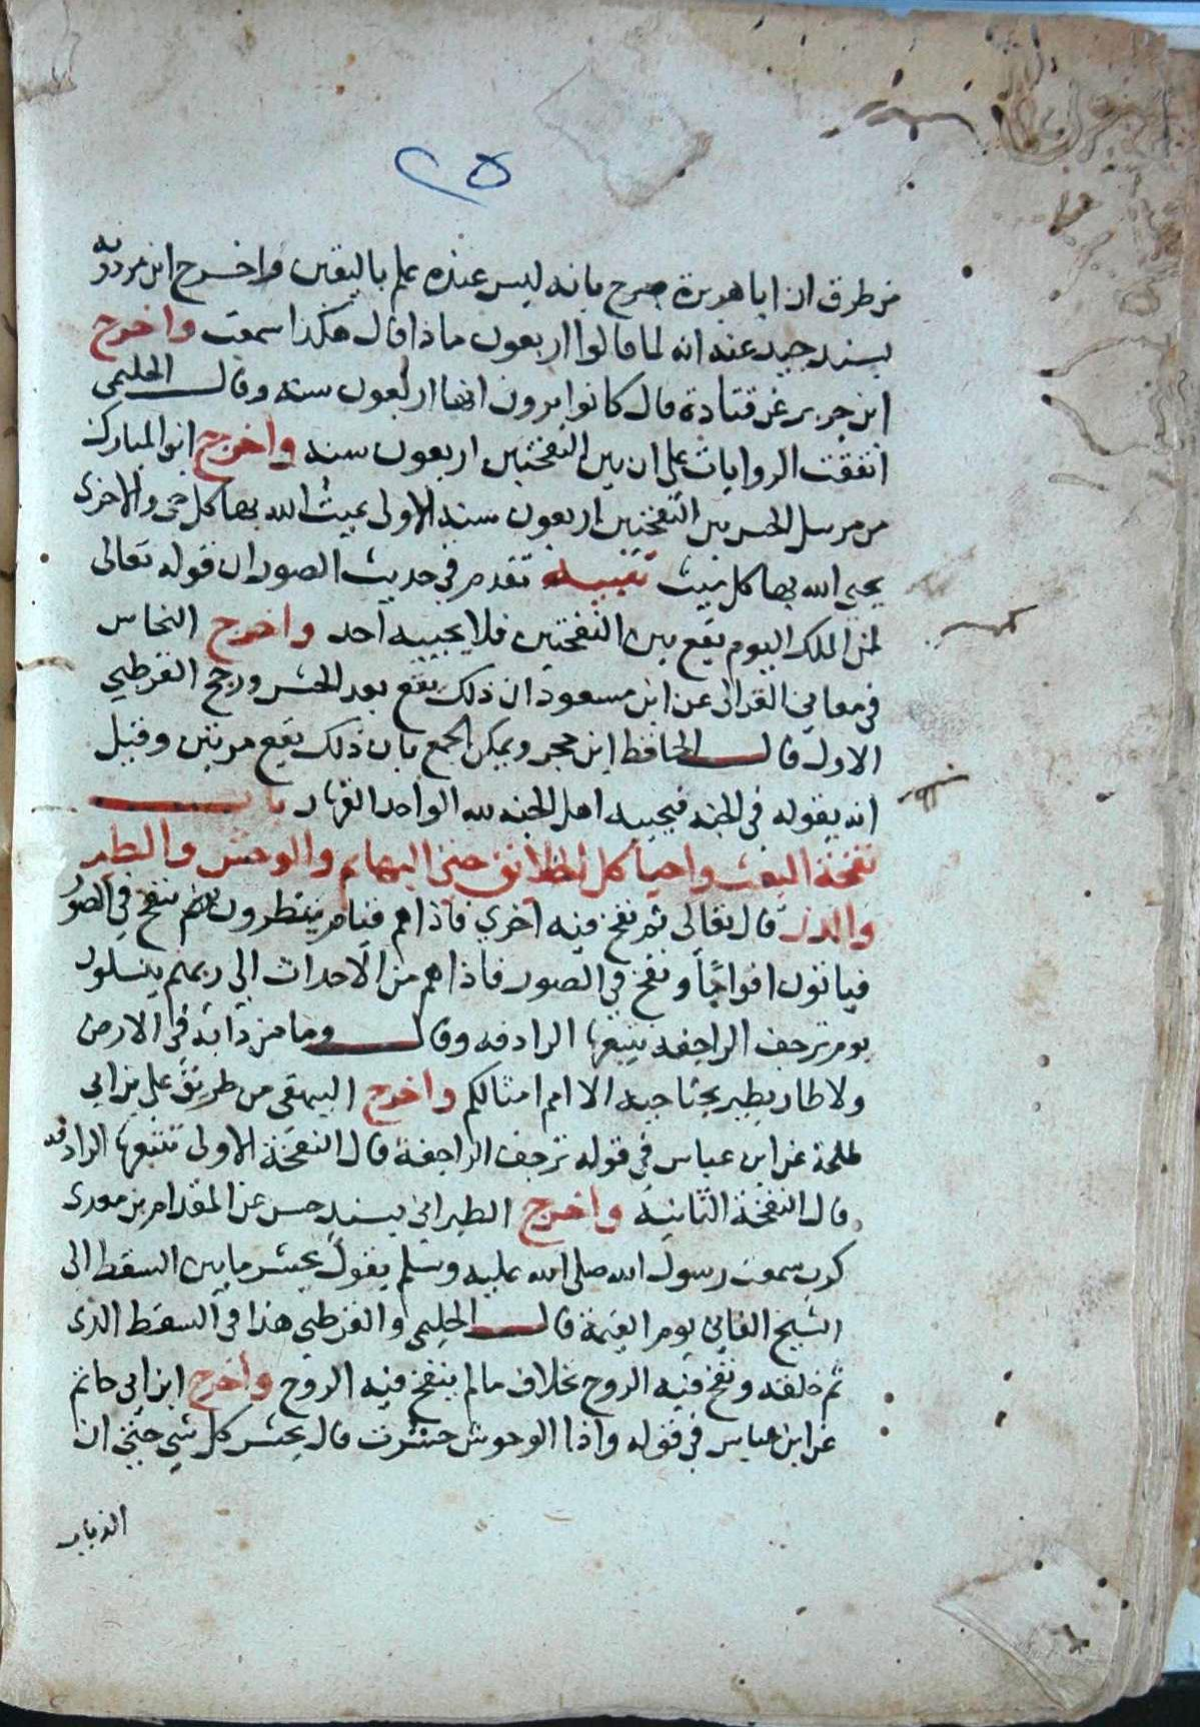 ٢٥
من طرق ان ابا هريرة صرح بانه ليس عنده علم باليقين واخرج ابن مردويه
بسند جيد عنه انه لما قالوا اربعون ماذا قال هكذا سمعت واخرج
ابن جرير عن قتادة قال كانوا يرون انها اربعون سنة وقال الحليمى
اتفقت الروايات على ان بين النفختين اربعون سنة واخرج ابن المبارك
من مرسل الحسن بين النفختين اربعون سنة الاولى يميت الله بها كل حى والاخرى
يحيى الله بها كل ميت تنبيه تقدم في حديث الصور ان قوله تعالى
لمن الملك اليوم يقع بين النفختين فلا يجيبه احد واخرج النحاس
في معاني القران عن ابن مسعود ان ذلك يقع بعد الحشر ورجح القرطبي
الاول قال الحافظ ابن حجر ويمكن الجمع بان ذلك يقع مرتين وقيل
انه يقوله في الجنة فيجيبه اهل الجنة لله الواحد القهار باب
نفخة البعث واحيا كل الخلائق حتى البهايم والوحش والطير
والذر قال تعالى ثم نفخ فيه اخري فاذا هم قيام ينظرون يوم ينفخ في الصور
فياتون افواجا ونفخ في الصور فاذا هم من الاحداث الى ربهم ينسلون
يوم ترجف الراجفة تتبعها الرادفه وقال وما من دابة في الارض
ولا طاير يطير بجناحيه الا امم امثالكم واخرج البيهقى من طريق على بن ابي
طلحة عن ابن عباس في قوله ترجف الراجفة قال النفخة الاولى تتبعها الرادفه
قال النفخة الثانية واخرج الطبراني بسند حسن عن المقدام بن معدى
كرب سمعت رسول الله صلى الله عليه وسلم يقول يحشر ما بين السقط الى
الشيخ الفاني يوم القيمة قال الحليمى والقرطبي هذا في السقط الذى
تم خلقه ونفخ فيه الروح بخلاف ما لم ينفخ فيه الروح واخرج ابن ابي حاتم
عن ابن عباس في قوله واذا الوحوش حشرت قال يحشر كل شي حتى ان
الذباب